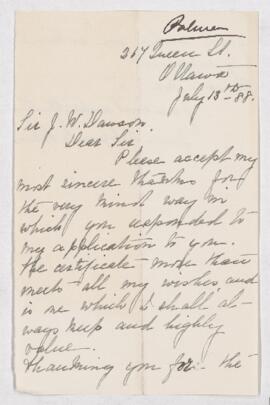 Palmer
267 Queen St.
Ottawa
July 13th - 88.
Sir J. W. Dawson.
Dear Sir
Please accept my
most sincere thanks for
the very kind way in
which you responded to
my application to you.
The certificate more than
meets all my wishes and
is one which I shall al-
ways keep and highly
value.
Thanking you for the